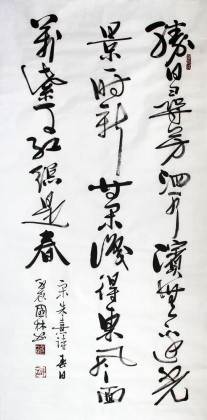 勝日尋芳泗水濱無邊光
景一時新等閒識得東風面
萬紫千紅總是春
宋朱熹詩春日
國林書